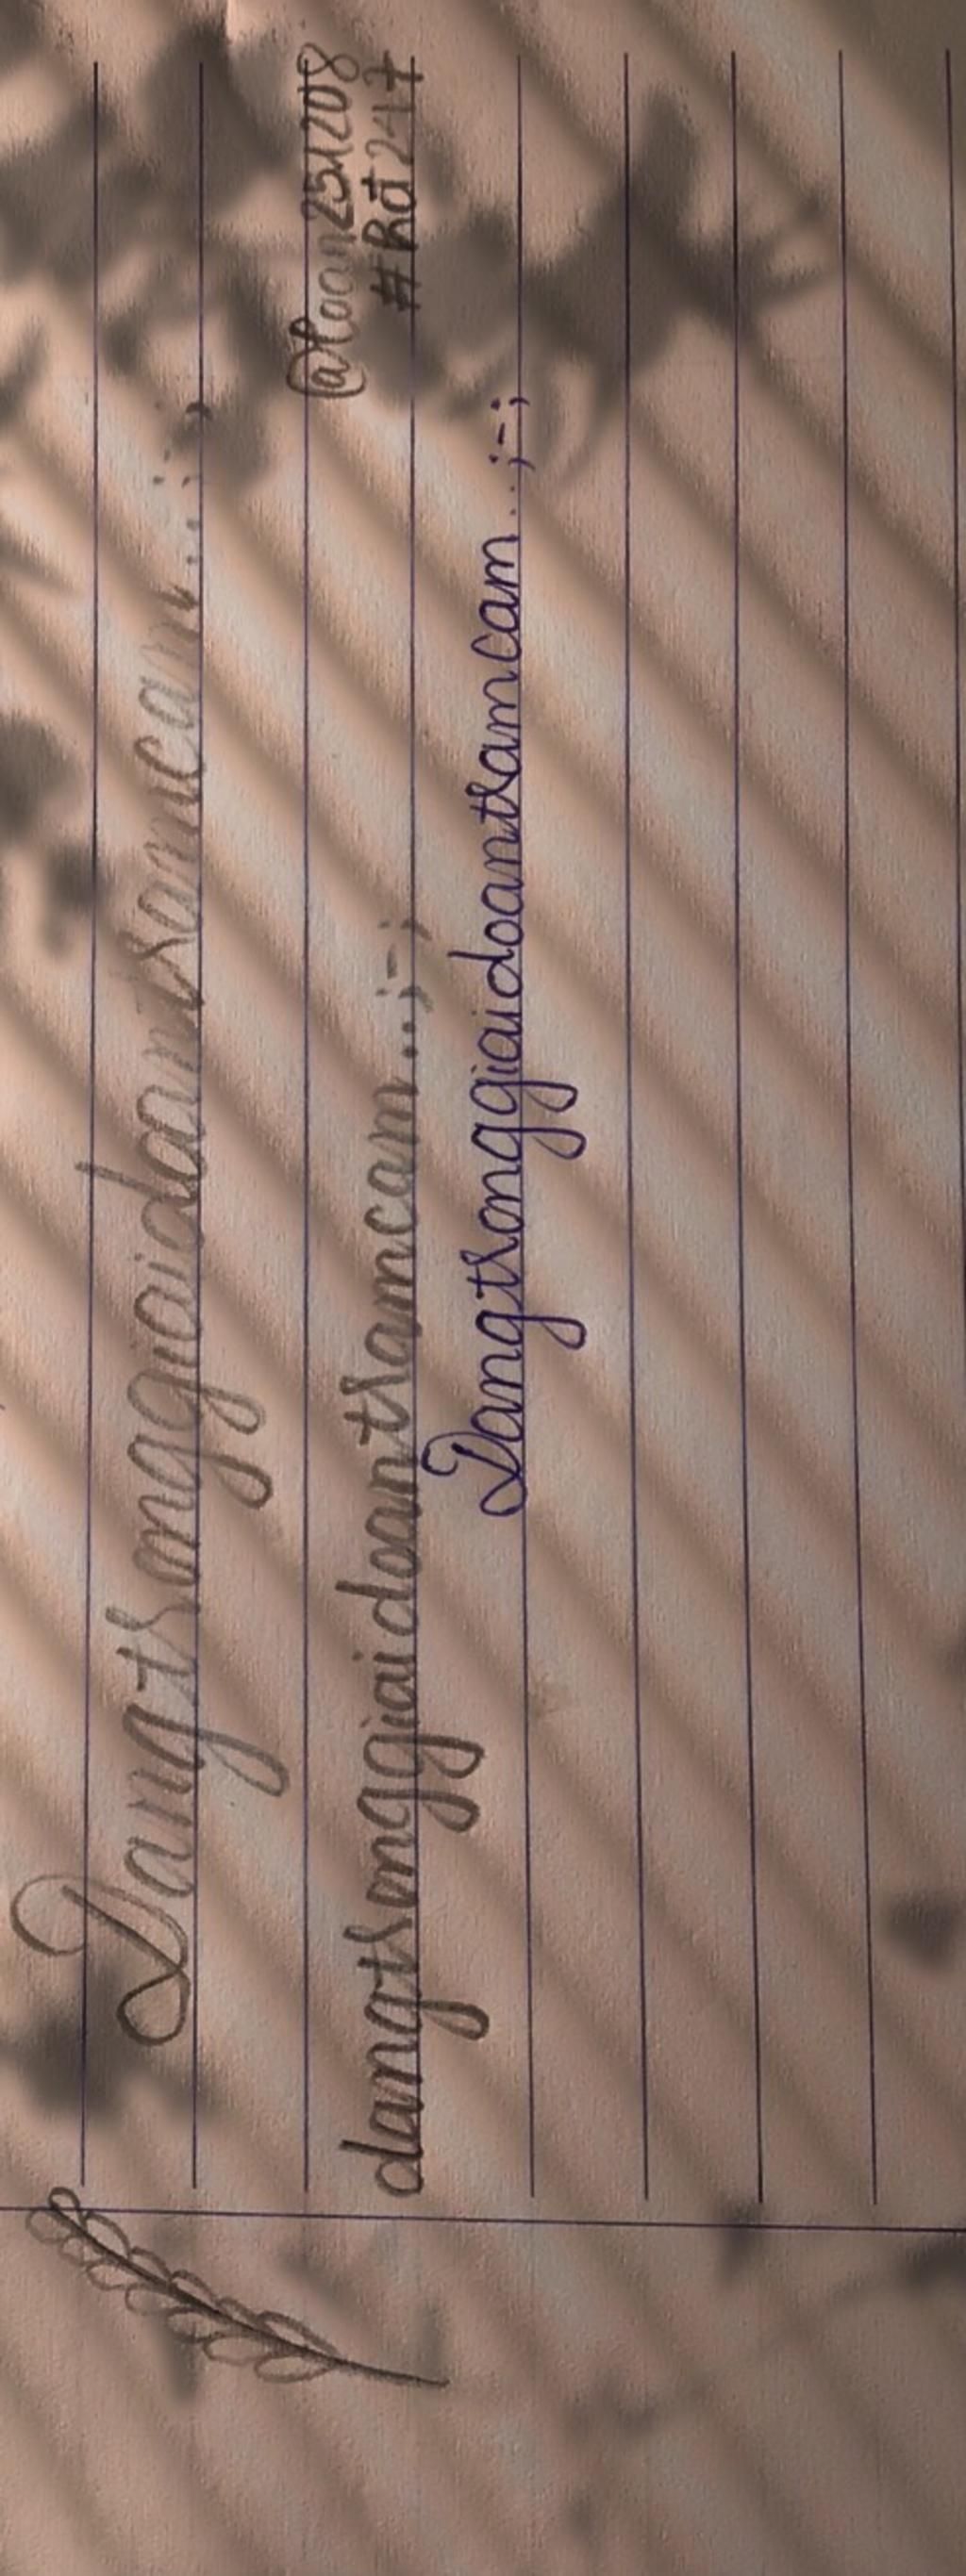 Dangtronggiaidoantramcam...;-;
@toan251208
#Rđ247
dangtronggiaidoantramcam...;-;
Dangtronggiaidoantramcam...;-;